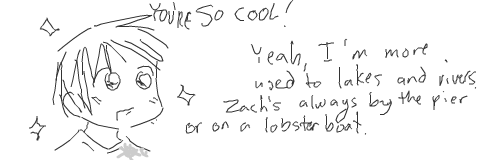 YOU'RE SO COOL!
Yeah, I'm more
used to lakes and rivers.
Zach's always by the pier
or on a lobster boat.